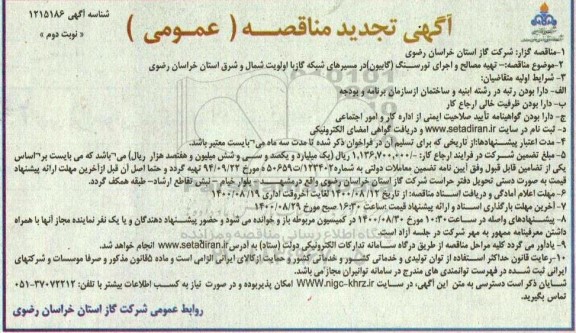 شناسه آگهی ۱۲۱۵۱۸۶
« نوبت دوم »
آگهی تجدید مناقصه ( عمومی )
۱-مناقصه گزار: شرکت گاز استان خراسان رضوی
۲-موضوع مناقصه:- تهیه مصالح و اجرای تورسنگ (گابیون)در مسیرهای شبکه گازبا اولویت شمال و شرق استان خراسان رضوی
۳- شرایط اولیه متقاضیان:
الف- دارا بودن رتبه در رشته ابنیه و ساختمان ازسازمان برنامه و بودجه
ب- دارا بودن ظرفیت خالی ارجاع کار
ج- دارا بودن گواهینامه تأیید صلاحیت ایمنی از اداره کار و امور اجتماعی
د- ثبت نام در سایت www.setadiran.ir و دریافت گواهی امضای الکترونیکی
۴- مدت اعتبار پیشنهادها:از تاریخی که برای تسلیم آن در فراخوان ذکر شده تا مدت سه ماه می بایست معتبر باشد.
۵-مبلغ تضمین شرکت در فرایند ارجاع کار: -/۱,۱۳۶,۷۰۰,۰۰۰ ریال (یک میلیارد و یکصد و سی و شش میلیون و هفتصد هزار ریال) می باشد که می بایست براساس
یکی از تضامین قابل قبول وفق آیین نامه تضمین معاملات دولتی به شماره۱۲۳۴۰۲/ت۵۰۶۵۹ه مورخ ۹۴/۰۹/۲۲ تهیه گردد و حتما اصل آن قبل ازآخرین مهلت ارائه پیشنهاد
قیمت به صورت دستی تحویل دفتر حراست شرکت گاز استان خراسان رضوی واقع درمشهد - بلوار خیام - نبش تقاطع ارشاد- طبقه همکف گردد.
۶- مهلت اعلام آمادگی و دریافت اسناد مناقصه: از تاریخ ۱۴۰۰/۰۸/۱۲ لغایت آخروقت اداری ۱۴۰۰/۰۸/۱۹
۷- آخرین مهلت بارگذاری اسناد و ارائه پیشنهاد قیمت:ساعت ۱۶:۳۰ صبح مورخ ۱۴۰۰/۰۸/۲۹
۸- پیشنهادهای واصله در ساعت ۱۰:۳۰ مورخ ۱۴۰۰/۰۸/۳۰ در کمیسیون مربوطه باز و خوانده می شود و حضور پیشنهاد دهندگان و یا یک نفر نماینده مجاز آنها با همراه
داشتن معرفینامه ممهور به مهر شرکت در جلسه آزاد است.
۹- یادآور می گردد کلیه مراحل مناقصه از طریق درگاه سامانه تدارکات الکترونیکی دولت (ستاد) به آدرس www.setadiran.ir انجام خواهد شد.
۱۰-رعایت قانون حداکثر استفاده از توان تولیدی و خدماتی کشور و حمایت ازکالای ایرانی الزامی است و ماده ۵قانون مذکور و صرفا موسسات و شرکتهای
ایرانی ثبت شده در فهرست توانمندی های مندرج در سامانه توانیران مجاز می باشد.
شایان ذکر است دسترسی به متن این آگهی، در سایت WWW.nigc-khrz.ir امکان پذیربوده و در صورت نیاز به کسب اطلاعات بیشتر با تلفن: ۳۷۰۷۲۲۱۲-۰۵۱
تماس بگیرید.
روابط عمومی شرکت گاز استان خراسان رضوی